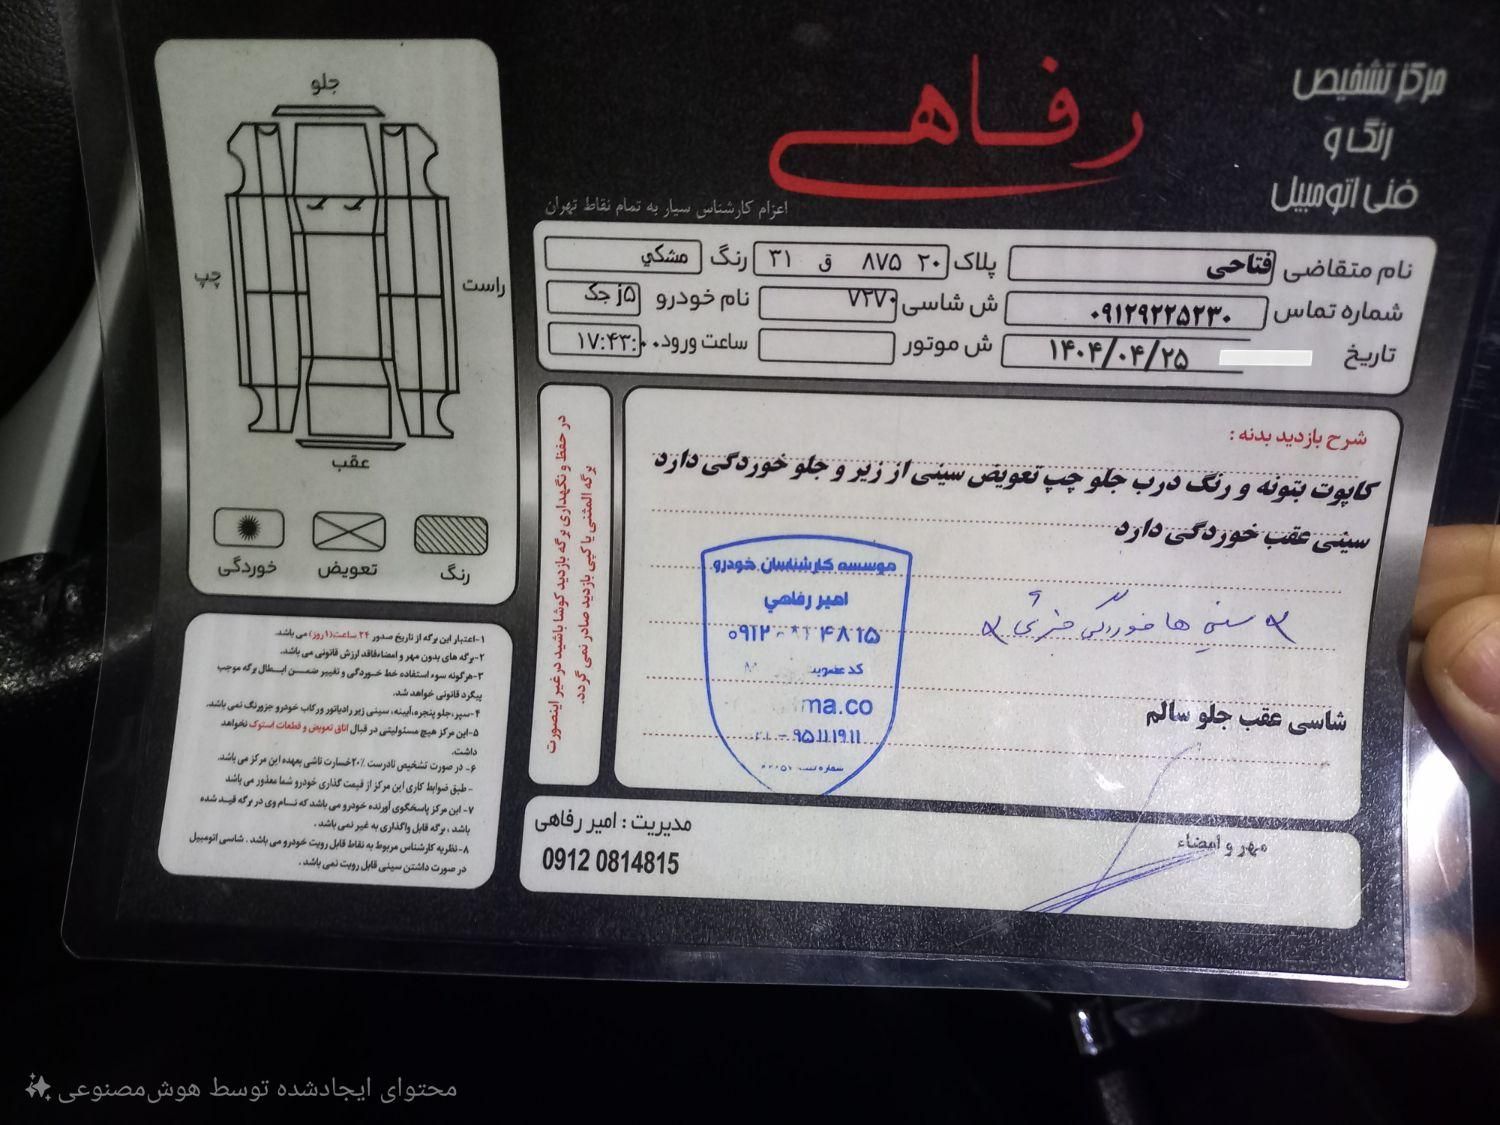 مرکز تشخیص
رنگ و
فنی اتومبیل
رفاهی
اعزام کارشناس سیار به تمام نقاط تهران
نام متقاضی فتاحی پلاک ۲۰ ۸۷۵ ق ۳۱ رنگ مشکي
شماره تماس ۰۹۱۲۹۲۲۵۲۳۰ ش شاسی ۷۲۷۰ نام خودرو j۵ جک
تاریخ ۱۴۰۴/۰۴/۲۵ ش موتور ساعت ورود ۱۷:۴۳:۰۰
جلو
چپ
راست
عقب
رنگ
تعویض
خوردگی
در حفظ و نگهداری برگه بازدید کوشا باشید در غیر اینصورت
برگه المثنی یا کپی بازدید صادر نمی گردد.
شرح بازدید بدنه :
کاپوت بتونه و رنگ درب جلو چپ تعویض سینی از زیر و جلو خوردگی دارد
سینی عقب خوردگی دارد
سینی ها خوردگی جزئی
شاسی عقب جلو سالم
موسسه کارشناسان خودرو
امیر رفاهي
کد عضویت
ma.co
۹۵۱۱۱۹۱۱
۱-اعتبار این برگه از تاریخ صدور ۲۴ ساعت(۱روز) می باشد.
۲-برگه های بدون مهر و امضاءفاقد ارزش قانونی می باشد.
۳-هرگونه سوء استفاده خط خوردگی و تغییر ضمن ابطال برگه موجب
پیگرد قانونی خواهد شد.
۴-سپر،جلو پنجره،آیینه، سینی زیر رادیاتور ورکاب خودرو جزورنگ نمی باشد.
۵-این مرکز هیچ مسئولیتی در قبال اتاق تعویض و قطعات استوک نخواهد
داشت.
۶- در صورت تشخیص نادرست ۲۰٪خسارت ناشی بعهده این مرکز می باشد.
- طبق ضوابط کاری این مرکز از قیمت گذاری خودرو شما معذور می باشد
۷- این مرکز پاسخگوی آورنده خودرو می باشد که نام وی در برگه قید شده
باشد ، برگه قابل واگذاری به غیر نمی باشد .
۸-نظریه کارشناس مربوط به نقاط قابل رویت خودرو می باشد . شاسی اتومبیل
در صورت داشتن سینی قابل رویت نمی باشد .
مدیریت : امیر رفاهی
0912 0814815
مهر و امضاء
محتوای ایجادشده توسط هوش‌مصنوعی